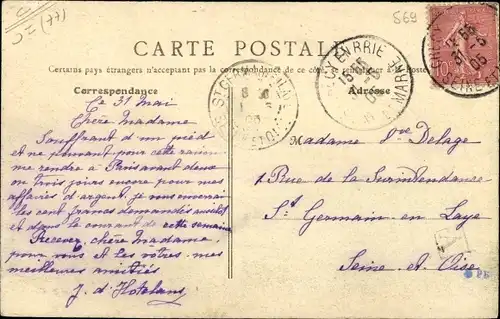 569
J = (77)
CARTE POSTALE
Certains pays étrangers n'acceptant pas la correspondance de ce côté
Correspondance
Adresse
EN BRIE
12 55
31 - 5
05
Ce 31 Mai
Chère Madame
Souffrant d'un pied
et ne pouvant pour cette raison
me rendre à Paris avant deux
ou trois jours encore pour mes
affaires d'argent, je vous enverrai
les cent francs demandés aussitôt
et dans le courant de cette semaine
Recevez, chère Madame,
pour vous et les vôtres mes
meilleures amitiés
Madame Vve Delage
1 Rue de la Surintendance
St Germain-en Laye
Seine et Oise